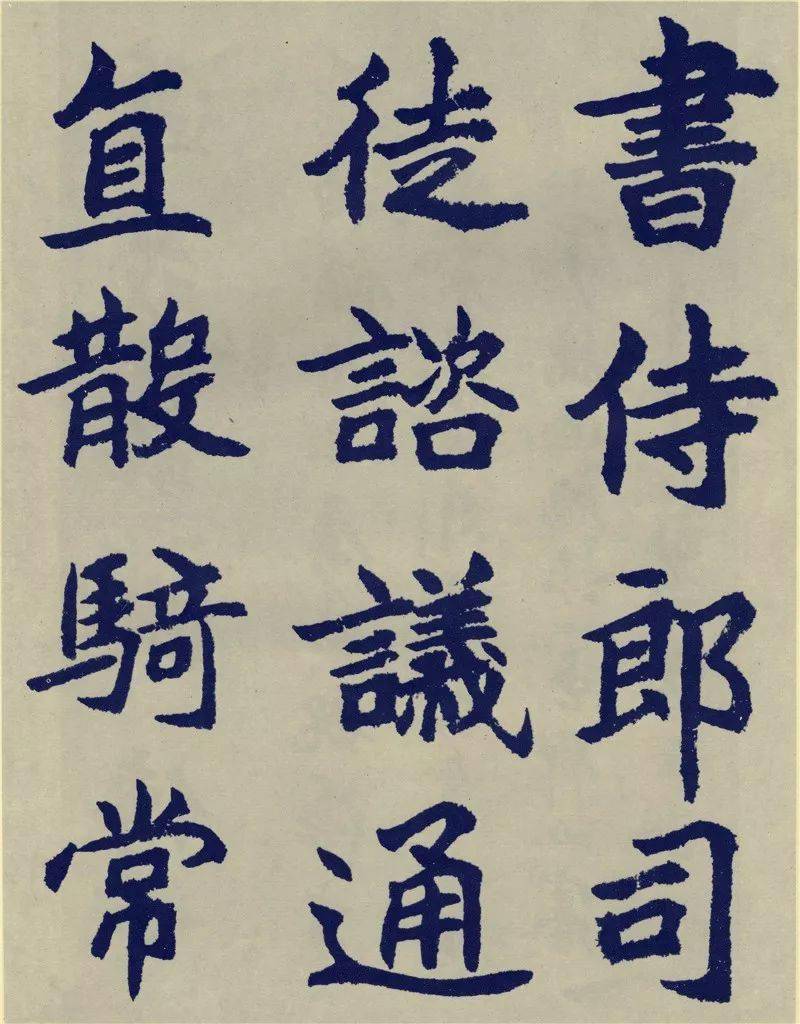 書侍郎司
徒諮議通
直散騎常